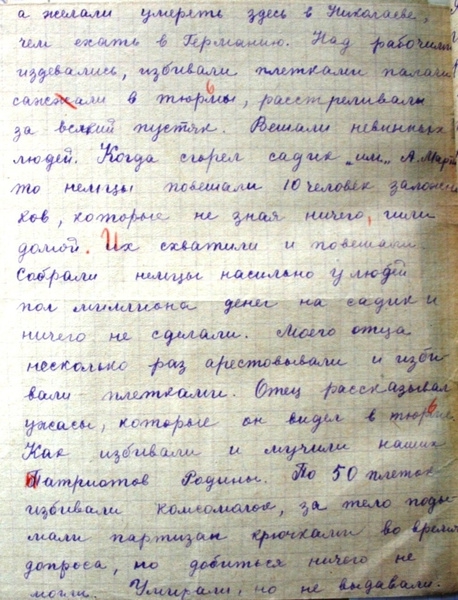 а желали умереть здесь в Николаеве,
чем ехать в Германию. Над рабочими
издевались, избивали плетками палачи
сажали в тюрьмы, расстреливали
за всякий пустяк. Вешали невинных
людей. Когда сгорел садик „им„ А. Марти
то немцы повешали 10 человек залож
ков, которые не зная ничего, шли
домой. Их схватили и повешали.
Собрали немцы насильно у людей
пол миллиона денег на садик и
ничего не сделали. Моего отца
несколько раз арестовывали и изби
вали плетками. Отец рассказывал
ужасы, которые он видел в тюрьме
Как избивали и мучили наших
Патриотов Родины. По 50 плеток
избивали комсомолок, за тело поды
мали партизан крючками во время
допроса, но добиться ничего не
могли. Умирали, но не выдавали.